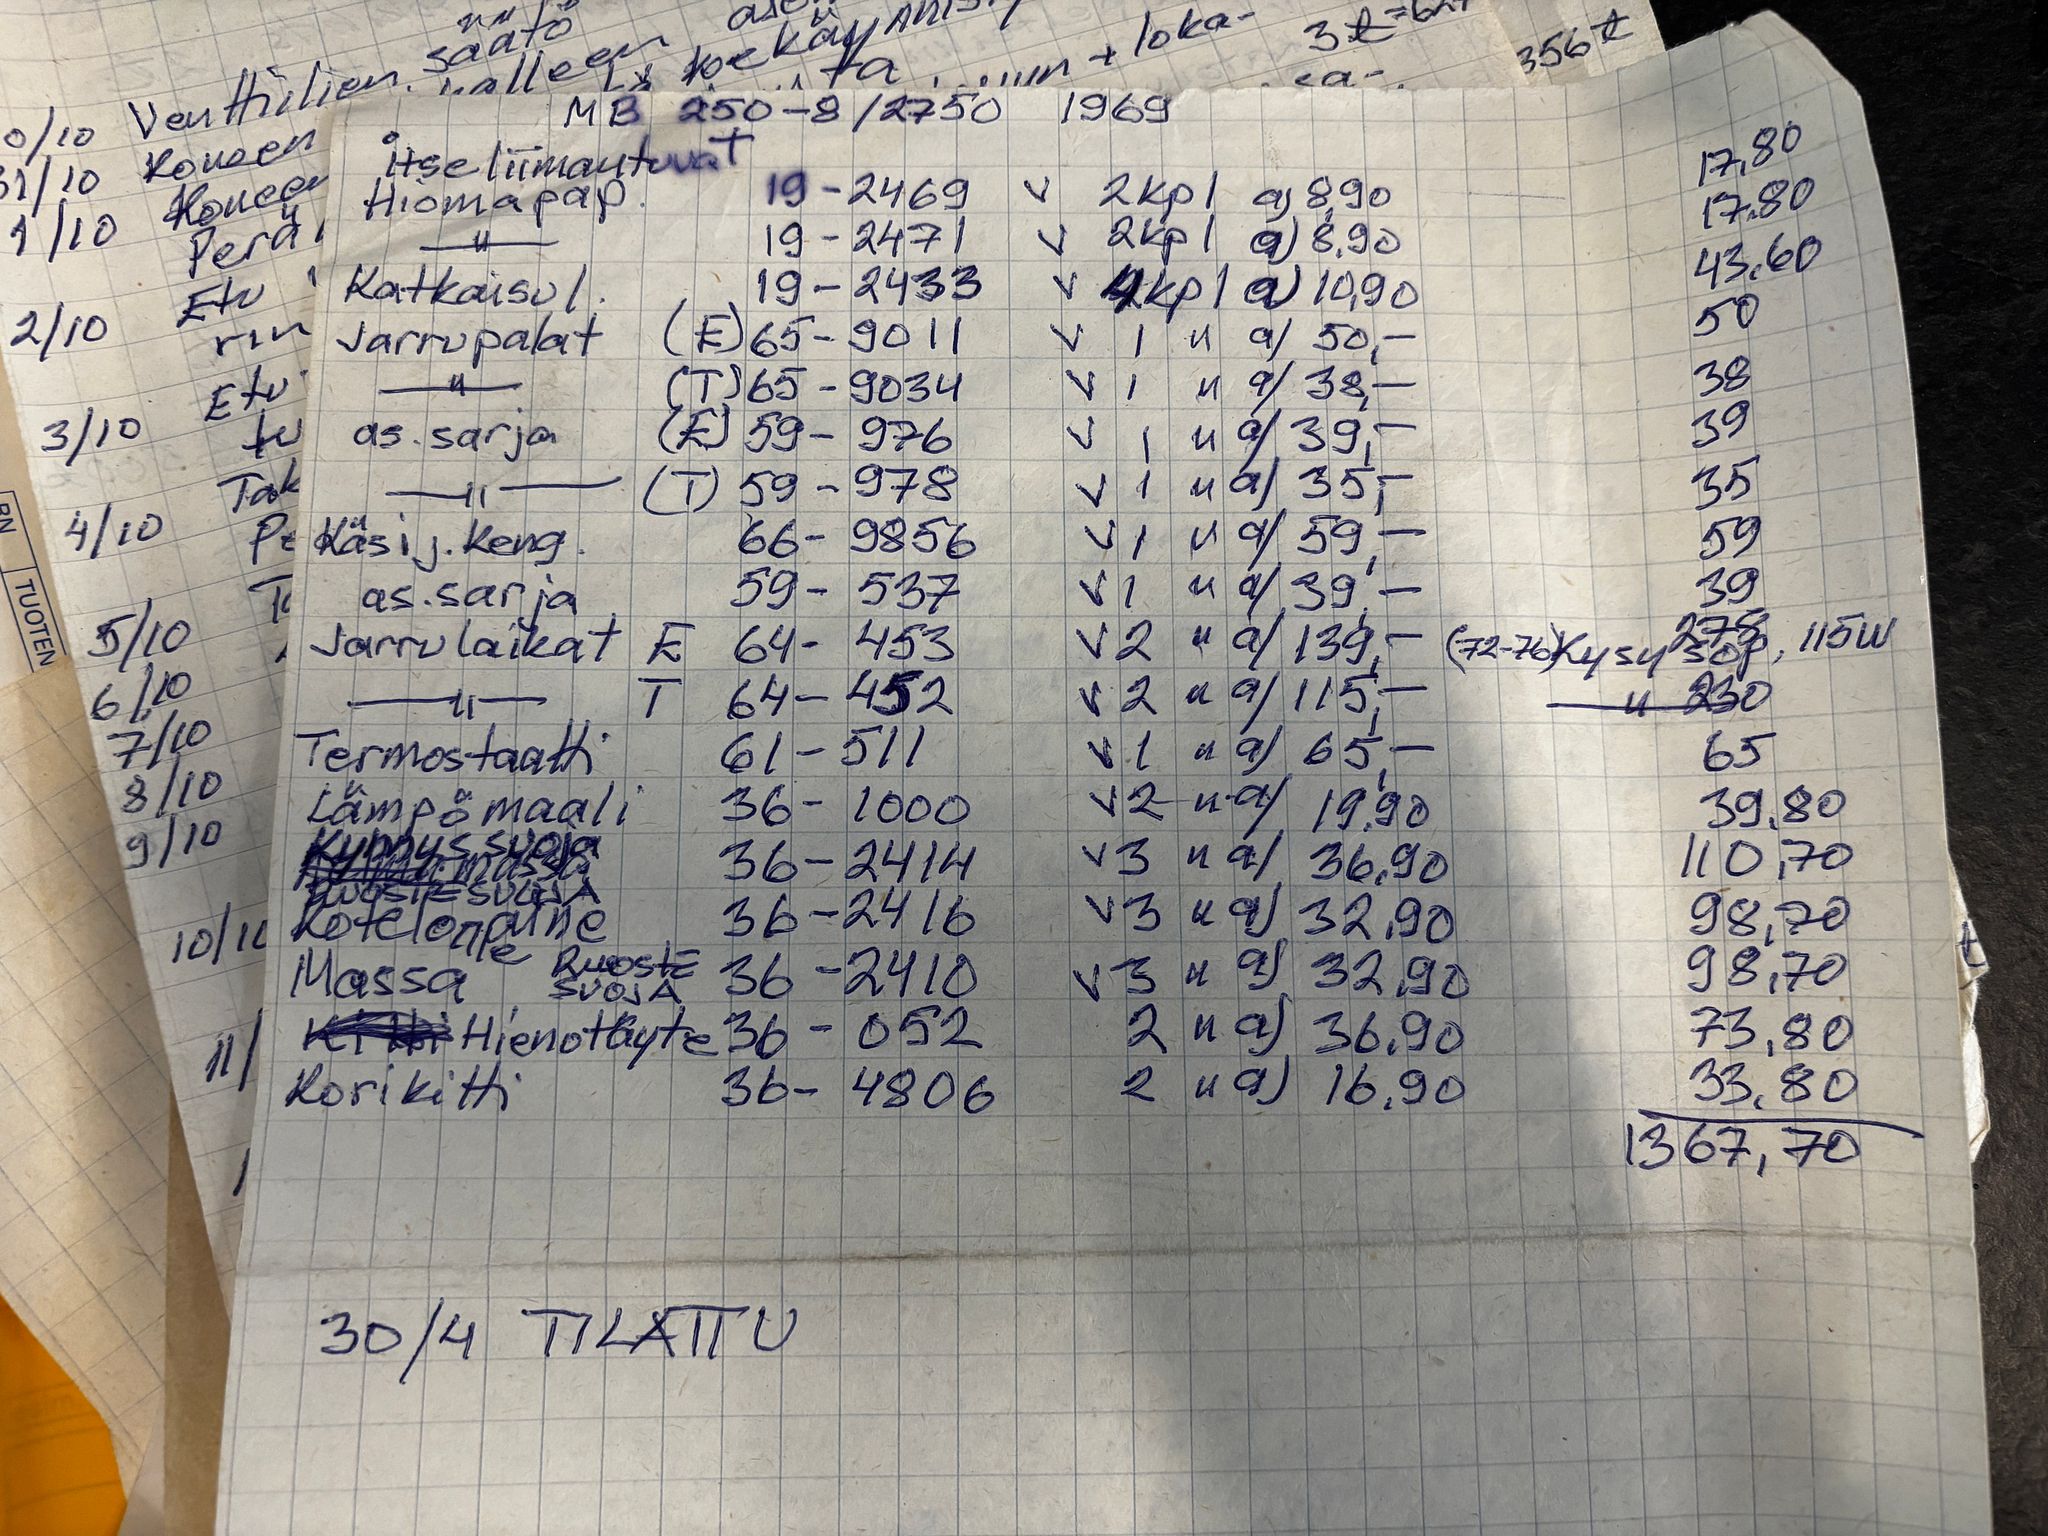 säätö
Venttiilien
3t=62t
356t
0/10
31/10 Koneen
1/10 Koneen
Perä
2/10 Etu
Etu
3/10
Tak
4/10
5/10
6/10
7/10
8/10
9/10
10/10
11/
TUOTEN
MB 250-8/2750 1969
itseliimautuvat
Hiomapap. 19-2469 v 2kpl a) 8,90 17,80
—"— 19-2471 v 2kpl a) 8,90 17,80
Katkaisul. 19-2433 v 4kpl a) 10,90 43,60
Jarrupalat (E) 65-9011 v 1 " a/ 50,- 50
—"— (T) 65-9034 v 1 " a/ 38,- 38
as.sarja (E) 59-976 v 1 " a/ 39,- 39
—"— (T) 59-978 v 1 " a/ 35,- 35
Käsij.keng. 66-9856 v 1 " a/ 59,- 59
as.sarja 59-537 v 1 " a/ 39,- 39
Jarrulaikat E 64-453 v 2 " a/ 139,- 278
(72-76) Kysy sop, 115W
—"— T 64-452 v 2 " a/ 115,- —"— 230
Termostaatti 61-511 v 1 " a) 65,- 65
Lämpömaali 36-1000 v 2 " a/ 19,90 39,80
Kynnyssuoja
massa 36-2414 v 3 " a/ 36,90 110,70
RUOSTESUOJA
Kotelonne 36-2416 v 3 " a) 32,90 98,70
Massa RUOSTE SUOJA 36-2410 v 3 " a) 32,90 98,70
Kitti Hienotäyte 36-052 2 " a) 36,90 73,80
Korikitti 36-4806 2 " a) 16,90 33,80
1367,70
30/4 TILATTU